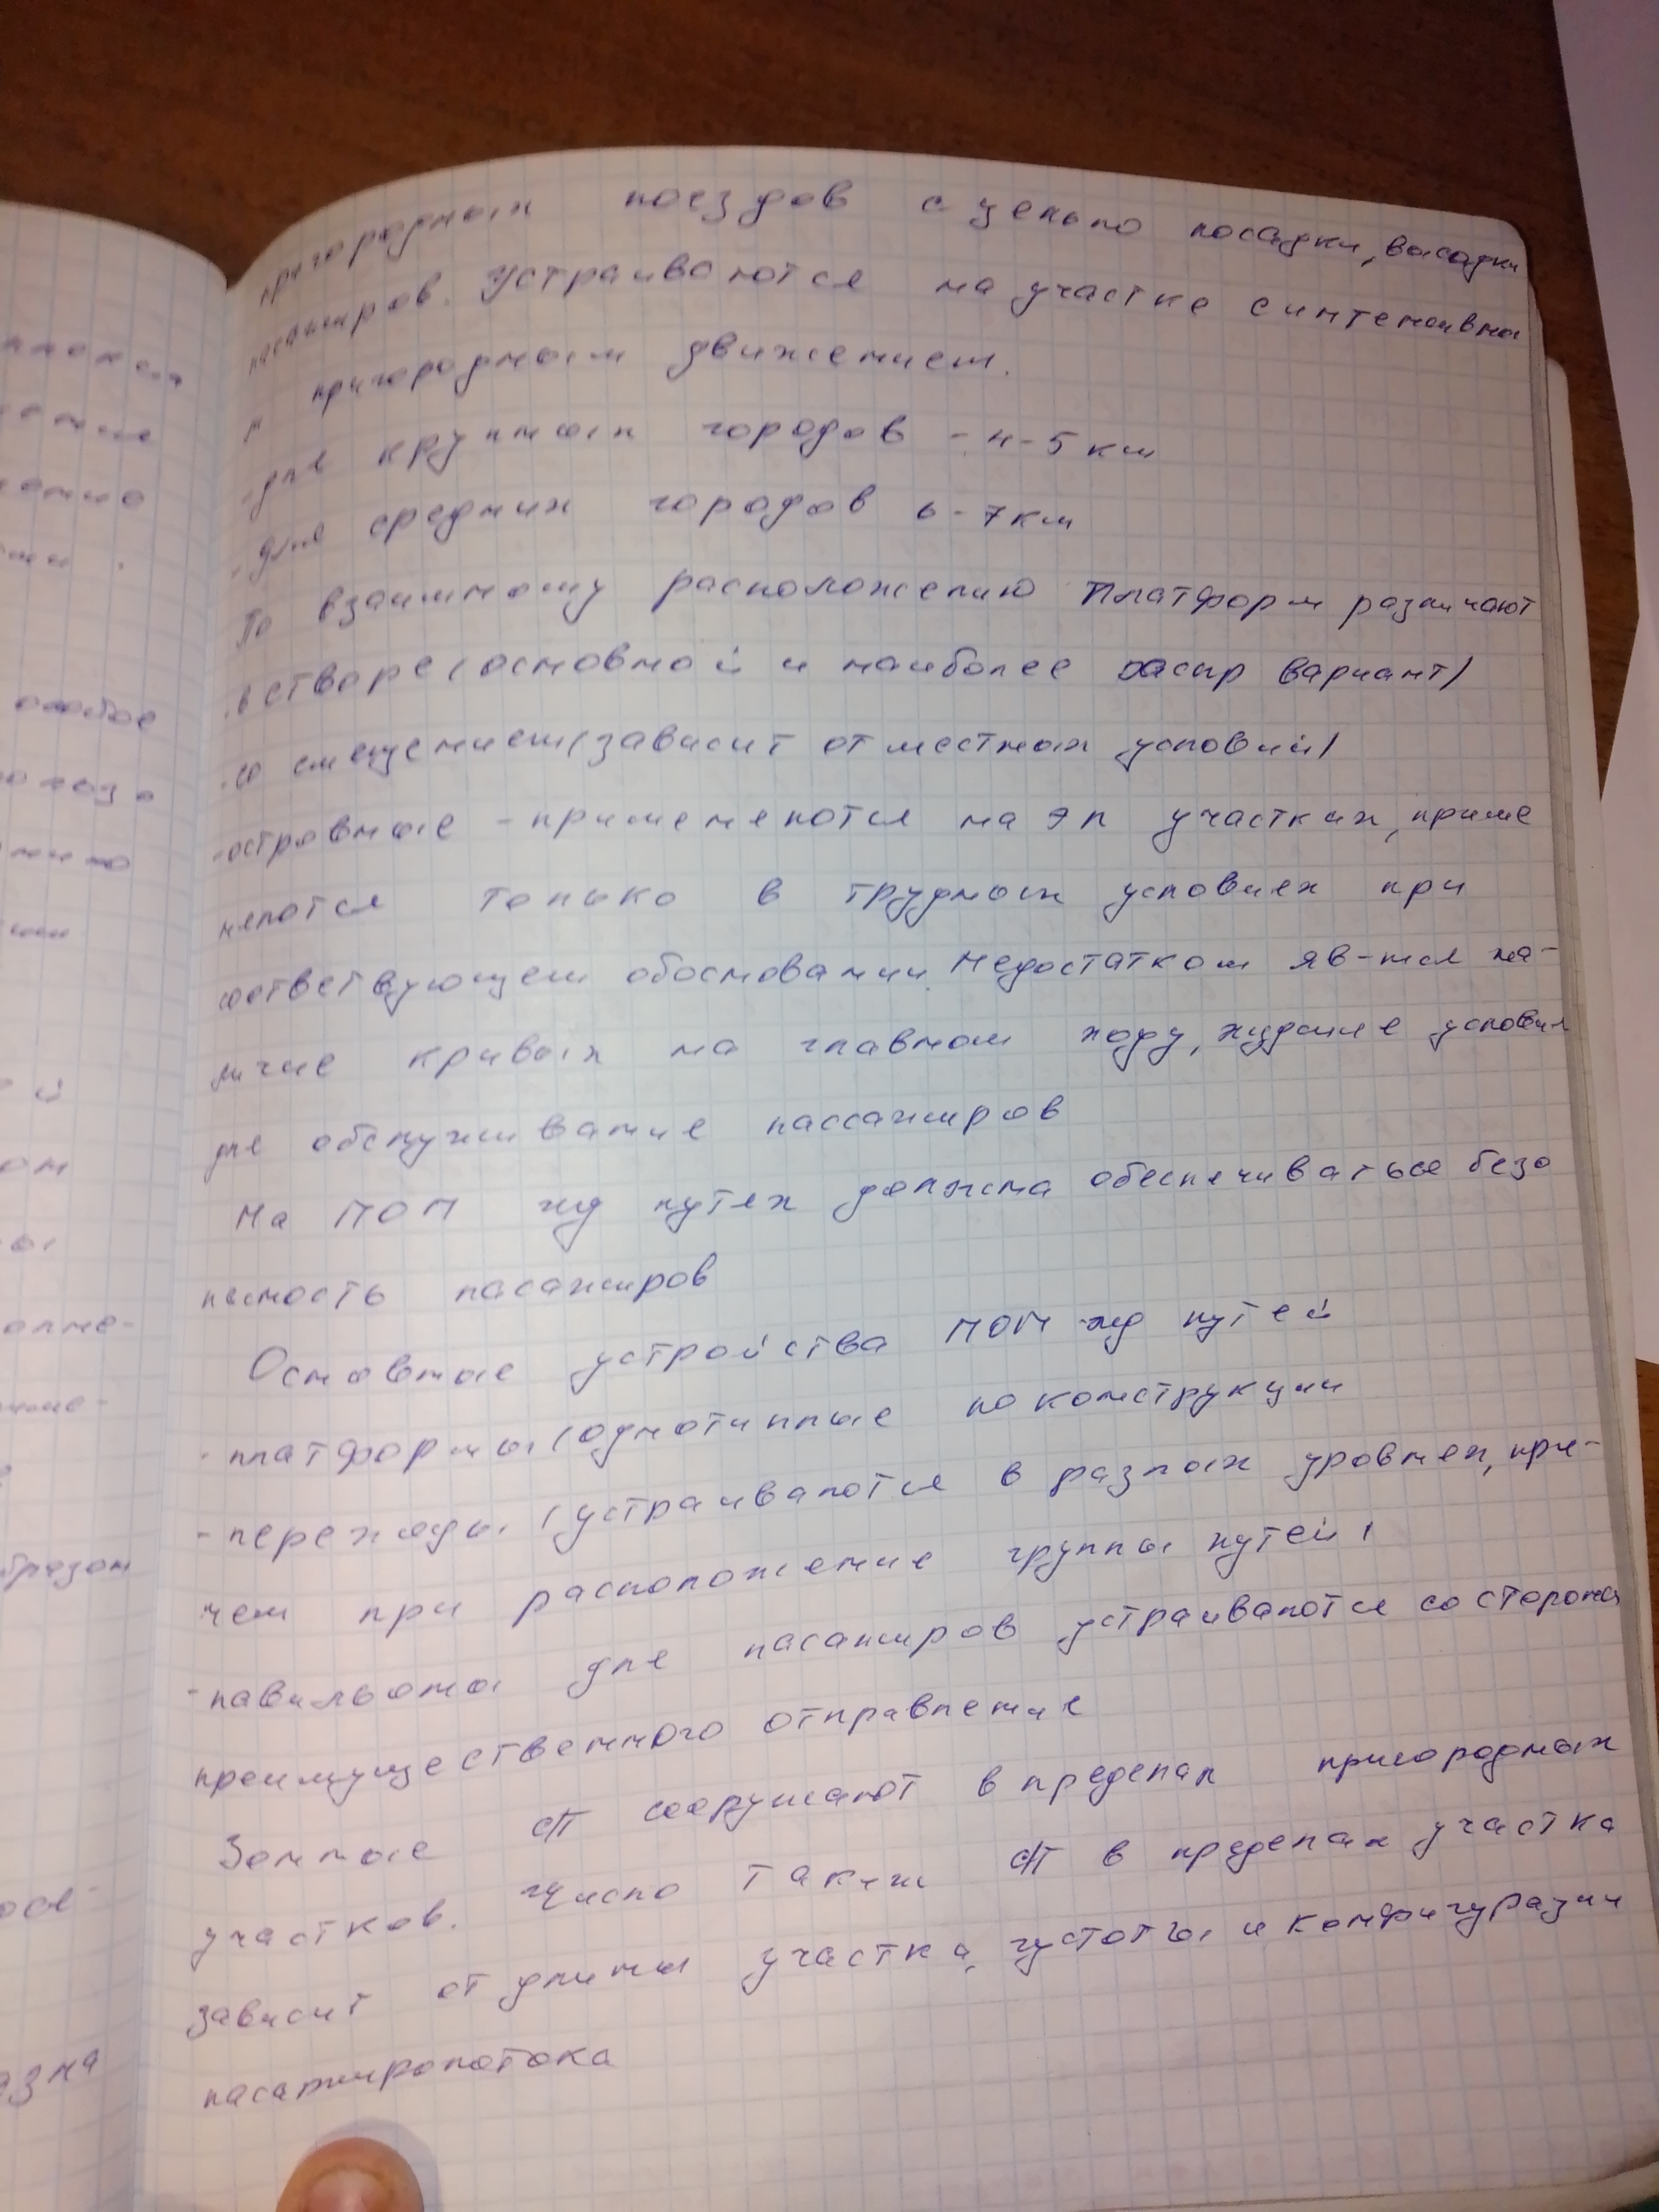 пригородных поездов с целью посадки, высадки
пасажиров. Устраиваются на участке с интенсивны
м пригородным движением.
- для крупных городов - 4-5 км
- для средних городов 6-7 км
По взаимному расположению Платформ различают
- в створе (основной и наиболее распр вариант)
- со смещением (зависит от местных условий)
- островные - применяются на эл участках, приме
няются только в трудных условиях при
соответствующем обосновании. Недостатком яв-тся на-
личие кривых на главном ходу, худшие условия
для обслуживание пассажиров
На ПОП жд путях должна обеспечиваться безо
пасность пасажиров
Основные устройства ПОП жд путей
- платформы (однотипные по конструкции
- переходы (устраиваются в разных уровнях, при-
чем при расположение группы путей)
- павильоны для пасажиров устраиваются со стороны
преимущественного отправление
Зонные ст сооружают в пределах пригородных
участков. Число таких ст в пределах участка
зависит от длины участка, густоты и конфигурации
пасажиропотока